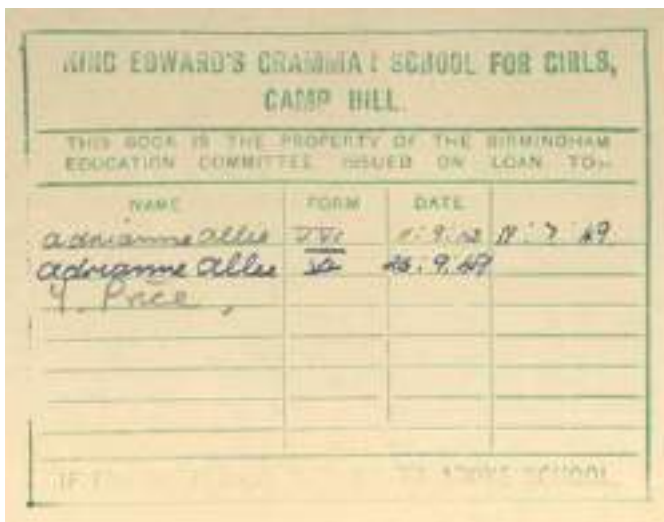 KING EDWARD'S GRAMMAR SCHOOL FOR GIRLS,
CAMP HILL.
THIS BOOK IS THE PROPERTY OF THE BIRMINGHAM
EDUCATION COMMITTEE ISSUED ON LOAN TO:-
NAME FORM DATE
adrianne allee
adrianne allee 26.9.69
Y. Price
IF ABOVE SCHOOL